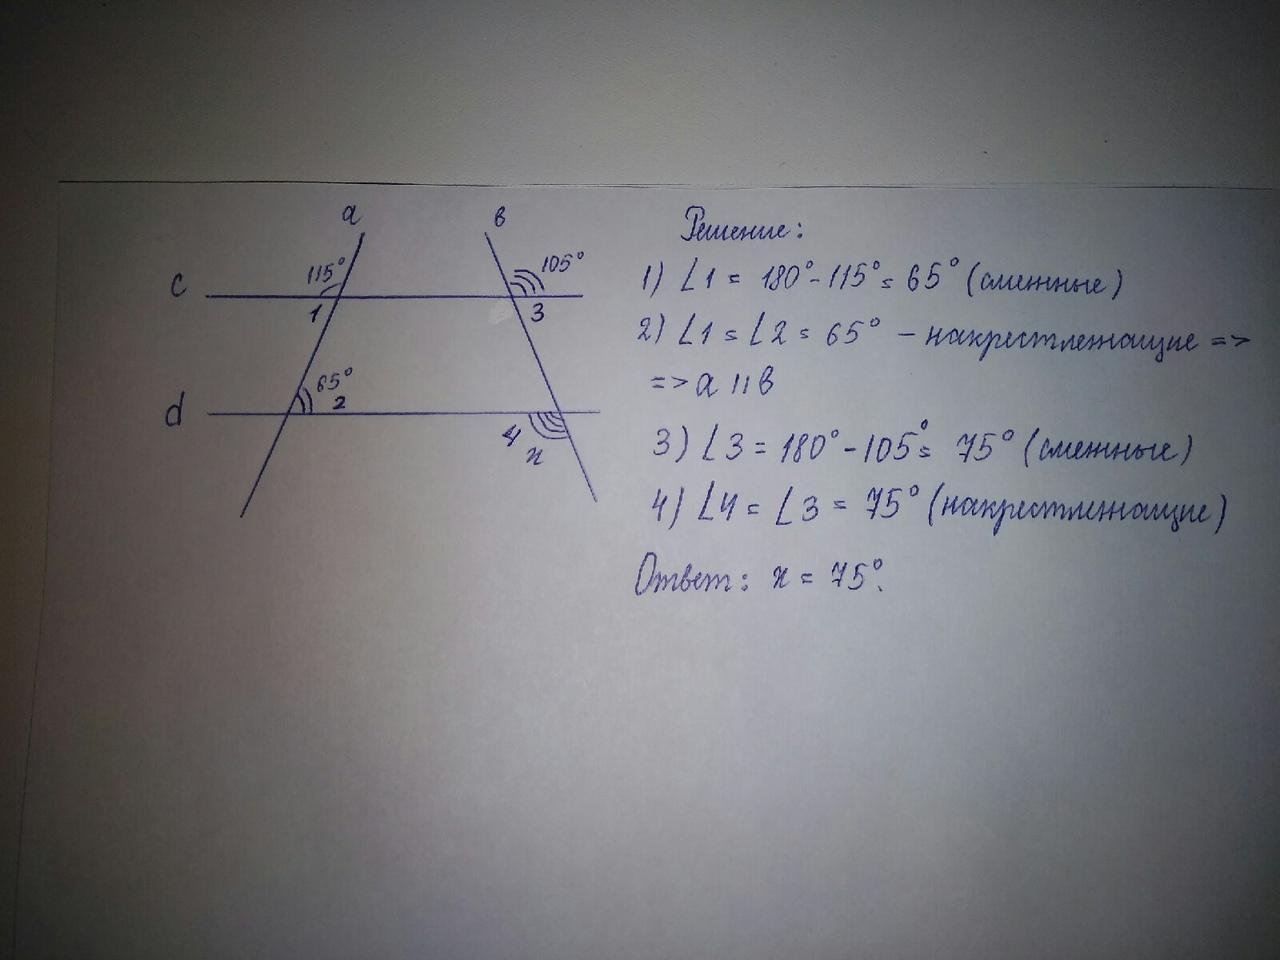 a
в
115°
105°
c
1
3
65°
2
d
4
x
Решение:
1) ∠1 = 180° - 115° = 65° (смежные)
2) ∠1 = ∠2 = 65° – накрестлежащие =>
=> a || в
3) ∠3 = 180° - 105° = 75° (смежные)
4) ∠4 = ∠3 = 75° (накрестлежащие)
Ответ: x = 75°.